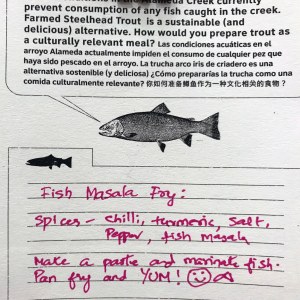 prevent consumption of any fish caught in the creek.
Farmed Steelhead Trout is a sustainable (and
delicious) alternative. How would you prepare trout as
a culturally relevant meal? Las condiciones acuáticas en el
arroyo Alameda actualmente impiden el consumo de cualquier pez que
haya sido pescado en el arroyo. La trucha arco iris de criadero es una
alternativa sostenible (y deliciosa) ¿Cómo prepararías la trucha como una
comida culturalmente relevante? 你如何准备鳟鱼作为一种文化相关的食物？
Fish Masala Fry:
Spices – chilli, turmeric, salt,
Pepper, fish masala
Make a paste and marinate fish.
Pan fry and YUM!